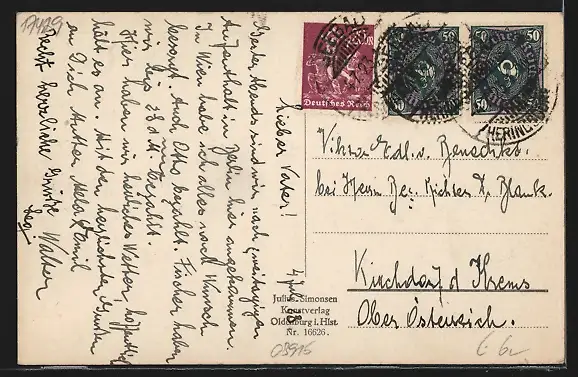 17419
Lieber Vater!
Gestern Abends sind wir nach zweitägigen
Aufenthalt in Berlin hier angekommen.
In Wien habe ich alles nach Wunsch
besorgt. Auch Otto bezahlt. Fischer haben
wir bis 28. d. M. bezahlt.
Hier haben wir herrliches Wetter, hoffentlich
hält es an. Mit den herzlichsten Grüßen
an Dich, Mutter, Emil
Recht herzliche Grüße Walter
Deutsches Reich
50 50
50 50
HERINGSDORF
Viktor Edl. v.
bei Herrn Bez. Richter D. Blank.
Kirchdorf a/d Krems
Ober Österreich.
Julius Simonsen
Kunstverlag
Oldenburg i. Hlst.
Nr. 16626.
08915